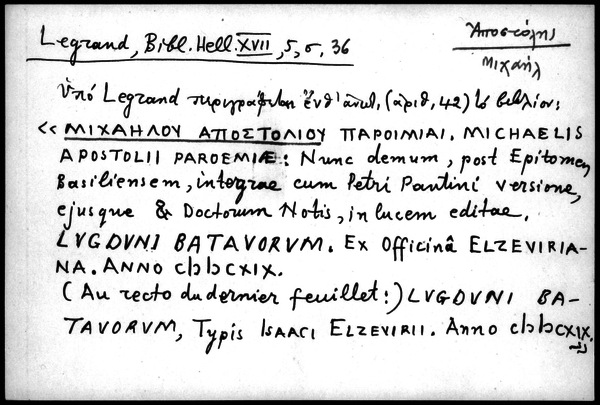 Legrand, Bibl. Hell. XVII, 5, σ. 36
Ἀποστόλης
Μιχαήλ
Ὑπό Legrand περιγράφεται ἔνθ' ἀνωτ. (ἀριθ. 42) τό βιβλίον:
<< ΜΙΧΑΗΛΟΥ ΑΠΟΣΤΟΛΙΟΥ ΠΑΡΟΙΜΙΑΙ. MICHAELIS
APOSTOLII PAROEMIÆ: Nunc demum, post Epitomen
Basiliensem, integrae cum Petri Pantini versione,
ejusque & Doctorum Notis, in lucem editae.
LVGDVNI BATAVORVM. Ex Officinâ ELZEVIRIA-
NA. ANNO cIↄ Iↄ CXIX.
(Au recto du dernier feuillet:) LVGDVNI BA-
TAVORVM, Typis ISAACI ELZEVIRII. Anno cIↄ Iↄ CXIX.
>>